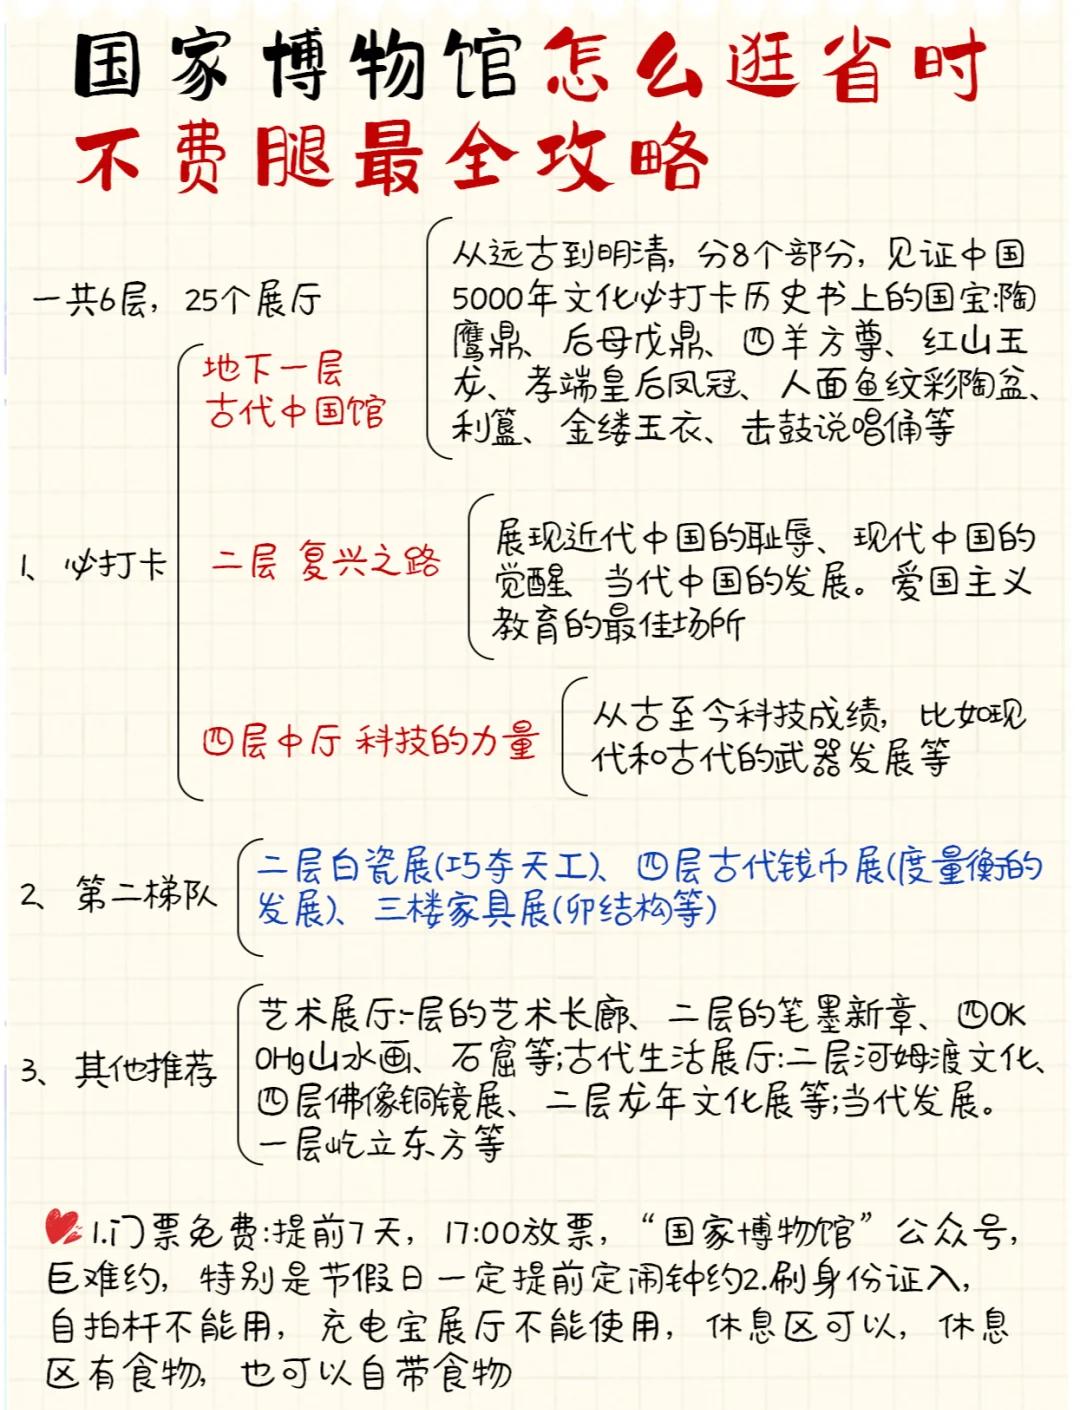 国家博物馆怎么逛省时
不费腿最全攻略
一共6层，25个展厅
1、必打卡
地下一层
古代中国馆
从远古到明清，分8个部分，见证中国
5000年文化必打卡历史书上的国宝:陶
鹰鼎、后母戊鼎、四羊方尊、红山玉
龙、孝端皇后凤冠、人面鱼纹彩陶盆、
利簋、金缕玉衣、击鼓说唱俑等
二层 复兴之路
展现近代中国的耻辱、现代中国的
觉醒、当代中国的发展。爱国主义
教育的最佳场所
四层中厅 科技的力量
从古至今科技成绩，比如现
代和古代的武器发展等
2、第二梯队
二层白瓷展(巧夺天工)、四层古代钱币展(度量衡的
发展)、三楼家具展(卯结构等)
3、其他推荐
艺术展厅:一层的艺术长廊、二层的笔墨新章、四OK
OHg山水画、石窟等;古代生活展厅:二层河姆渡文化、
四层佛像铜镜展、二层龙年文化展等;当代发展。
一层屹立东方等
1.门票免费:提前7天，17:00放票，“国家博物馆”公众号，
巨难约，特别是节假日一定提前定闹钟约2.刷身份证入，
自拍杆不能用，充电宝展厅不能使用，休息区可以，休息
区有食物，也可以自带食物